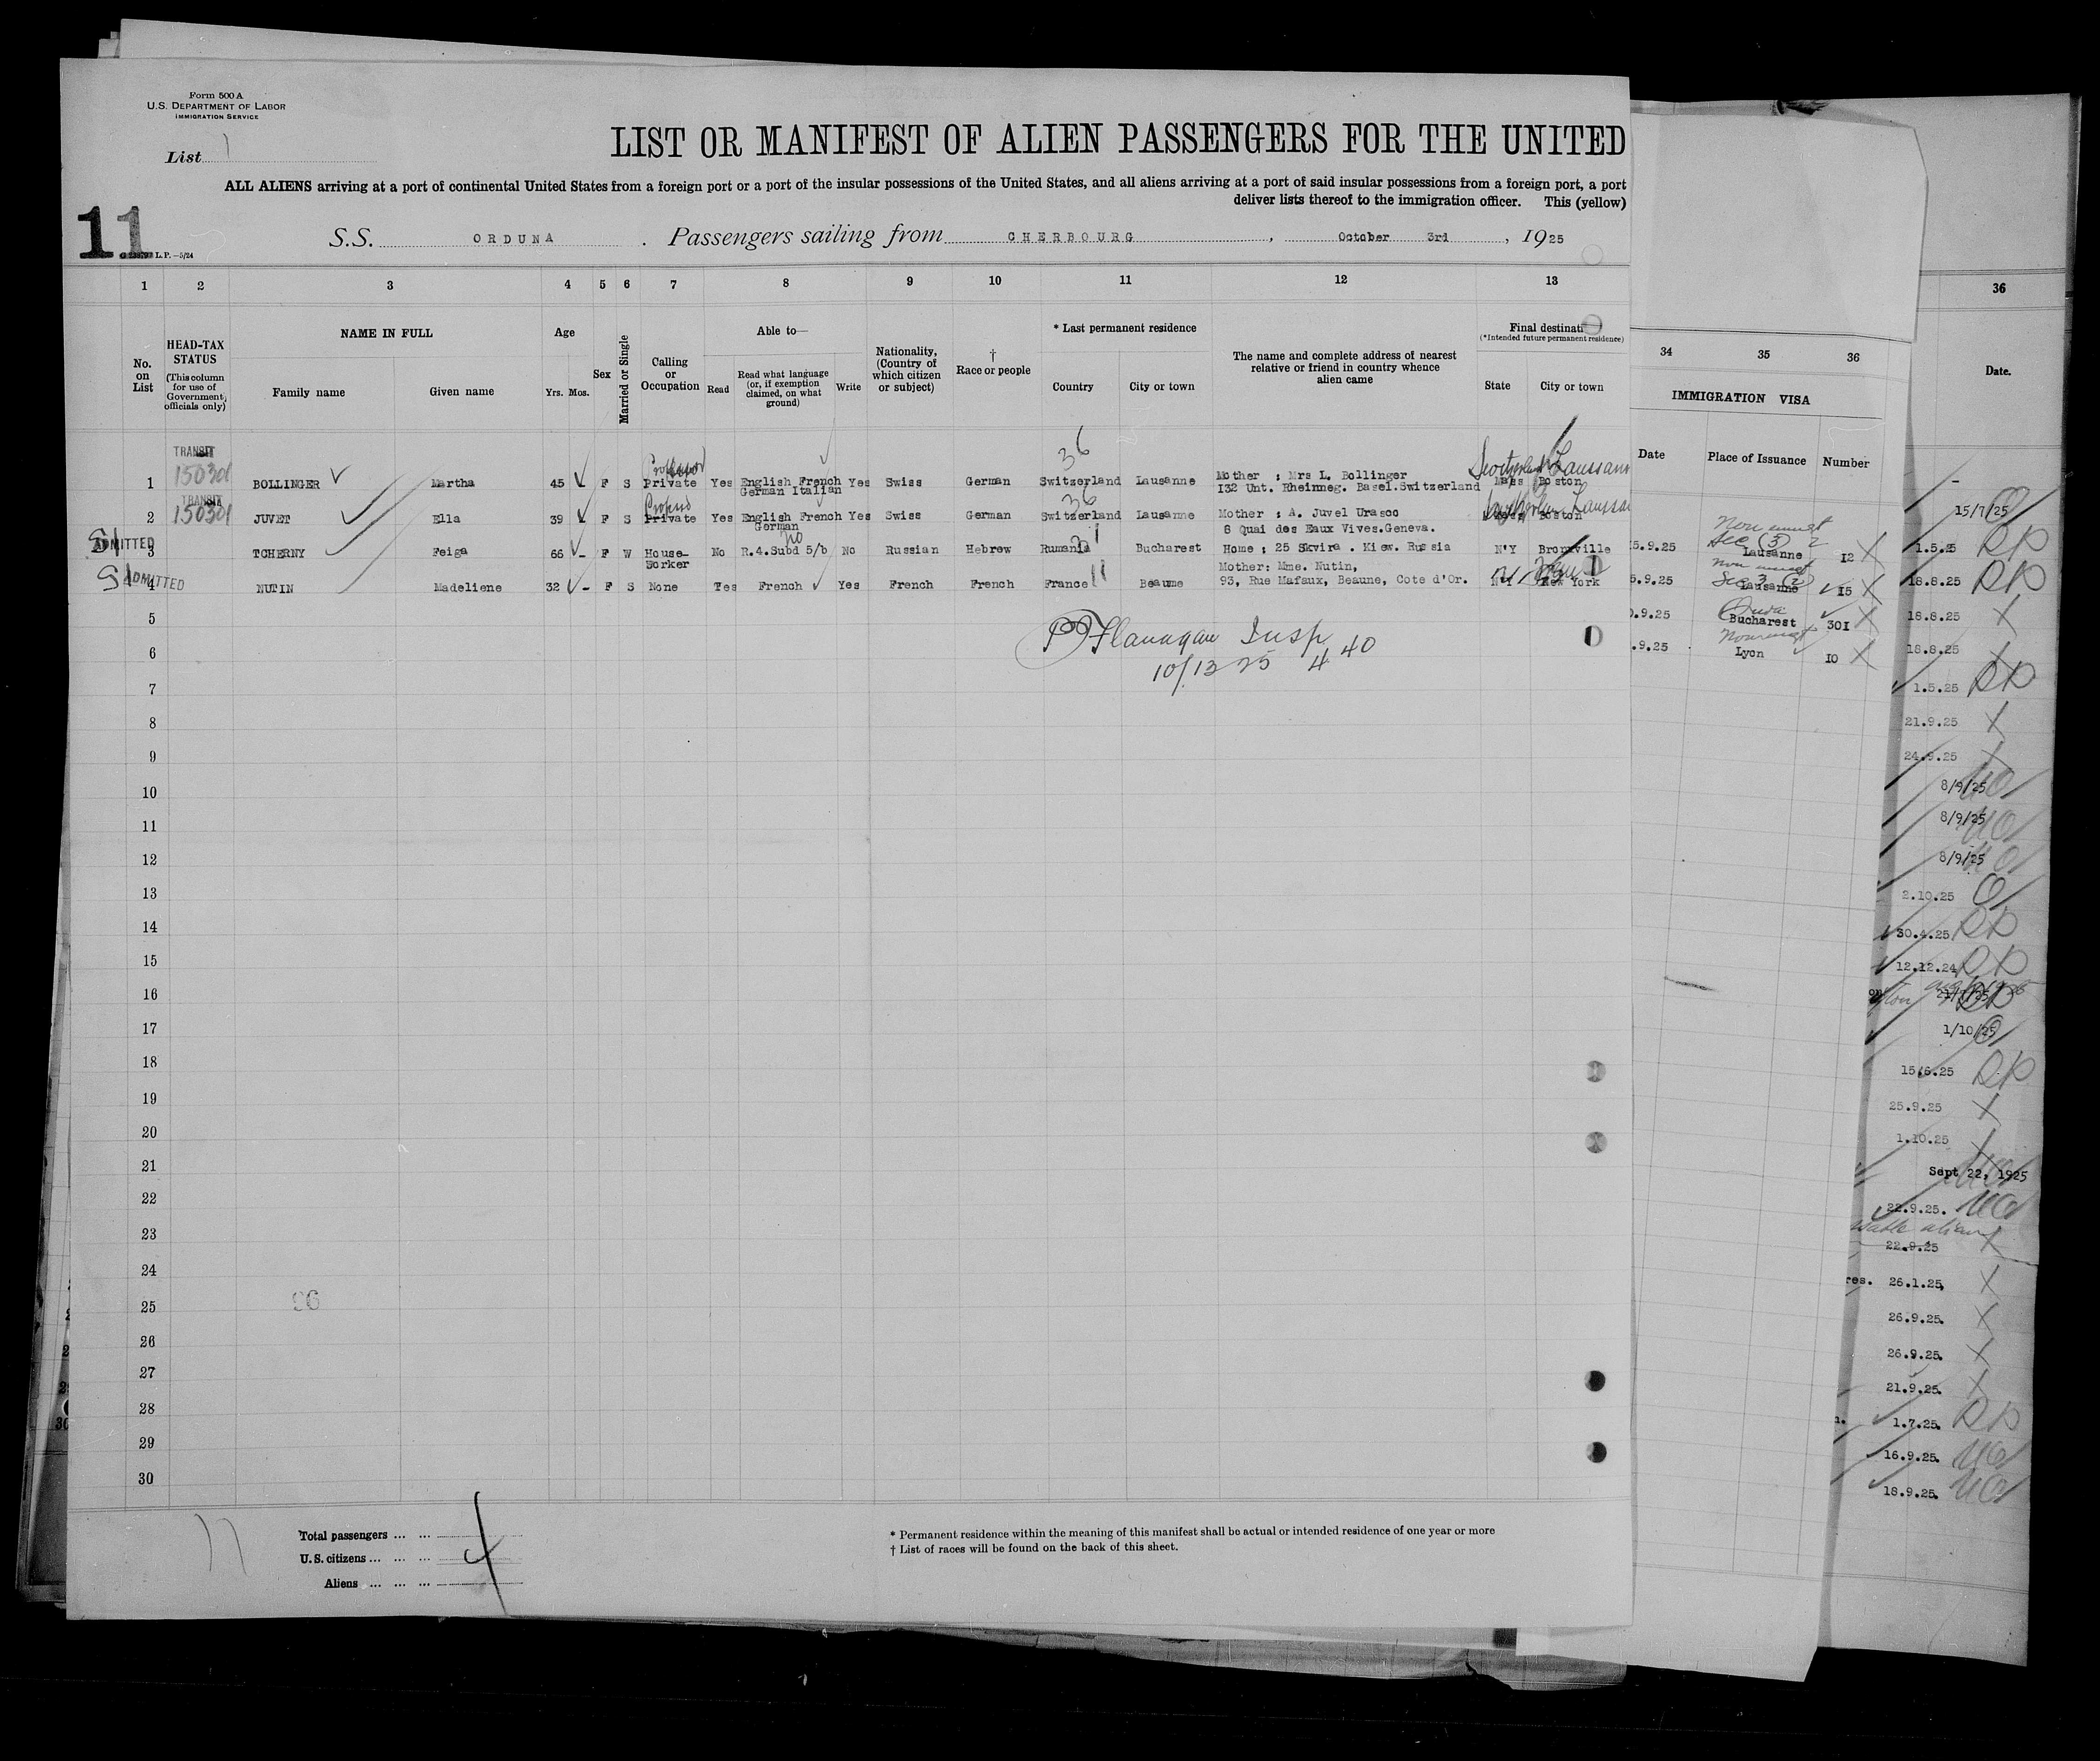 Form 500 A
U.S. DEPARTMENT OF LABOR
IMMIGRATION SERVICE
List 1
LIST OR MANIFEST OF ALIEN PASSENGERS FOR THE UNITED
ALL ALIENS arriving at a port of continental United States from a foreign port or a port of the insular possessions of the United States, and all aliens arriving at a port of said insular possessions from a foreign port, a port
deliver lists thereof to the immigration officer. This (yellow)
11
L.P.—5/24
S.S. ORDUNA. Passengers sailing from CHERBOURG, October 3rd, 1925
1 2 3 4 5 6 7 8 9 10 11 12 13
No. on List
HEAD-TAX STATUS (This column for use of Government officials only)
NAME IN FULL
Family name Given name
Age
Yrs. Mos.
Sex
Married or Single
Calling or Occupation
Able to—
Read
Read what language (or, if exemption claimed, on what ground)
Write
Nationality, (Country of which citizen or subject)
† Race or people
* Last permanent residence
Country City or town
The name and complete address of nearest relative or friend in country whence alien came
Final destinati
(*Intended future permanent residence)
State City or town
TRANSIT
150301
36
1 BOLLINGER Martha 45 F S Private Yes English French German Italian Yes Swiss German Switzerland Lausanne Mother : Mrs L. Bollinger
132 Unt. Rheinweg. Basel.Switzerland Mass Boston
TRANSIT
150301
36
2 JUVET Ella 39 F S Private Yes English French German Yes Swiss German Switzerland Lausanne Mother : A. Juvel Urasco
8 Quai des Eaux Vives.Geneva. Boston
SI ADMITTED
3 TCHERNY Feiga 66 - F W House-Worker No R.4.Subd 5/b No Russian Hebrew Rumania Bucharest Home : 25 Skvira . Kiew. Russia N'Y Bronxville
SI ADMITTED
4 NUTIN Madeliene 32 - F S None Yes French Yes French French France Beaume Mother: Mme. Nutin,
93, Rue Mafaux, Beaune, Cote d'Or. N'Y New York
Flanagan Insp
10/13 25 4 40
5
6
7
8
9
10
11
12
13
14
15
16
17
18
19
20
21
22
23
24
25
26
27
28
29
30
96
11
Total passengers ... ... 4
U.S. citizens ... ... ...
Aliens ... ... ...
* Permanent residence within the meaning of this manifest shall be actual or intended residence of one year or more
† List of races will be found on the back of this sheet.
34 35 36
IMMIGRATION VISA
Date Place of Issuance Number
5.9.25 Lausanne 12
5.9.25 Lausanne 15
.9.25 Bucharest 301
.9.25 Lyon 10
36
Date.
15/7/25
1.5.25
18.8.25
18.8.25
18.8.25
1.5.25
21.9.25
24.9.25
8/9/25
8/9/25
8/9/25
2.10.25
30.4.25
12.12.24
1/10/25
15.6.25
25.9.25
1.10.25
Sept 22, 1925
22.9.25.
22.9.25
res. 26.1.25
26.9.25.
26.9.25.
21.9.25.
1.7.25.
16.9.25.
18.9.25.